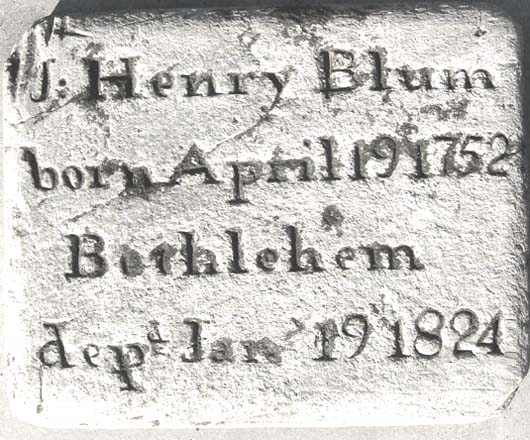 J: Henry Blum
born April 19 1752
Bethlehem
depᵈ Janʸ 19 1824